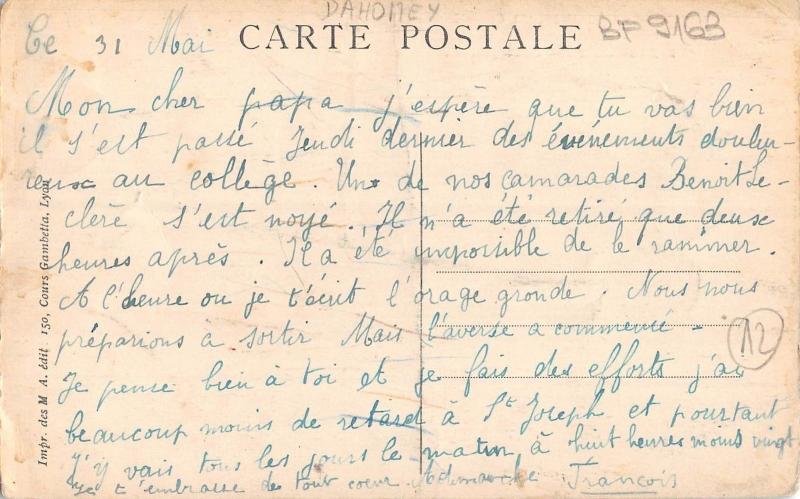 DAHOMEY
BF 9163
Ce 31 Mai
CARTE POSTALE
Mon cher papa j'espère que tu vas bien
il s'est passé Jeudi dernier des événements doulou-
reux au collège. Un de nos camarades Benoit Le-
clère s'est noyé. Il n'a été retiré que deux
heures après. Il a été impossible de le ranimer.
A l'heure ou je t'écrit l'orage gronde. Nous nous
préparions à sortir Mais l'averse a commencé -
12
Je pense bien à toi et je fais des efforts j'ai
beaucoup moins de retard à St Joseph et pourtant
J'y vais tous les jours le matin à huit heures moins vingt
Je t'embrasse de tout coeur François
Impr. des M A. édit 150, Cours Gambetta, Lyon